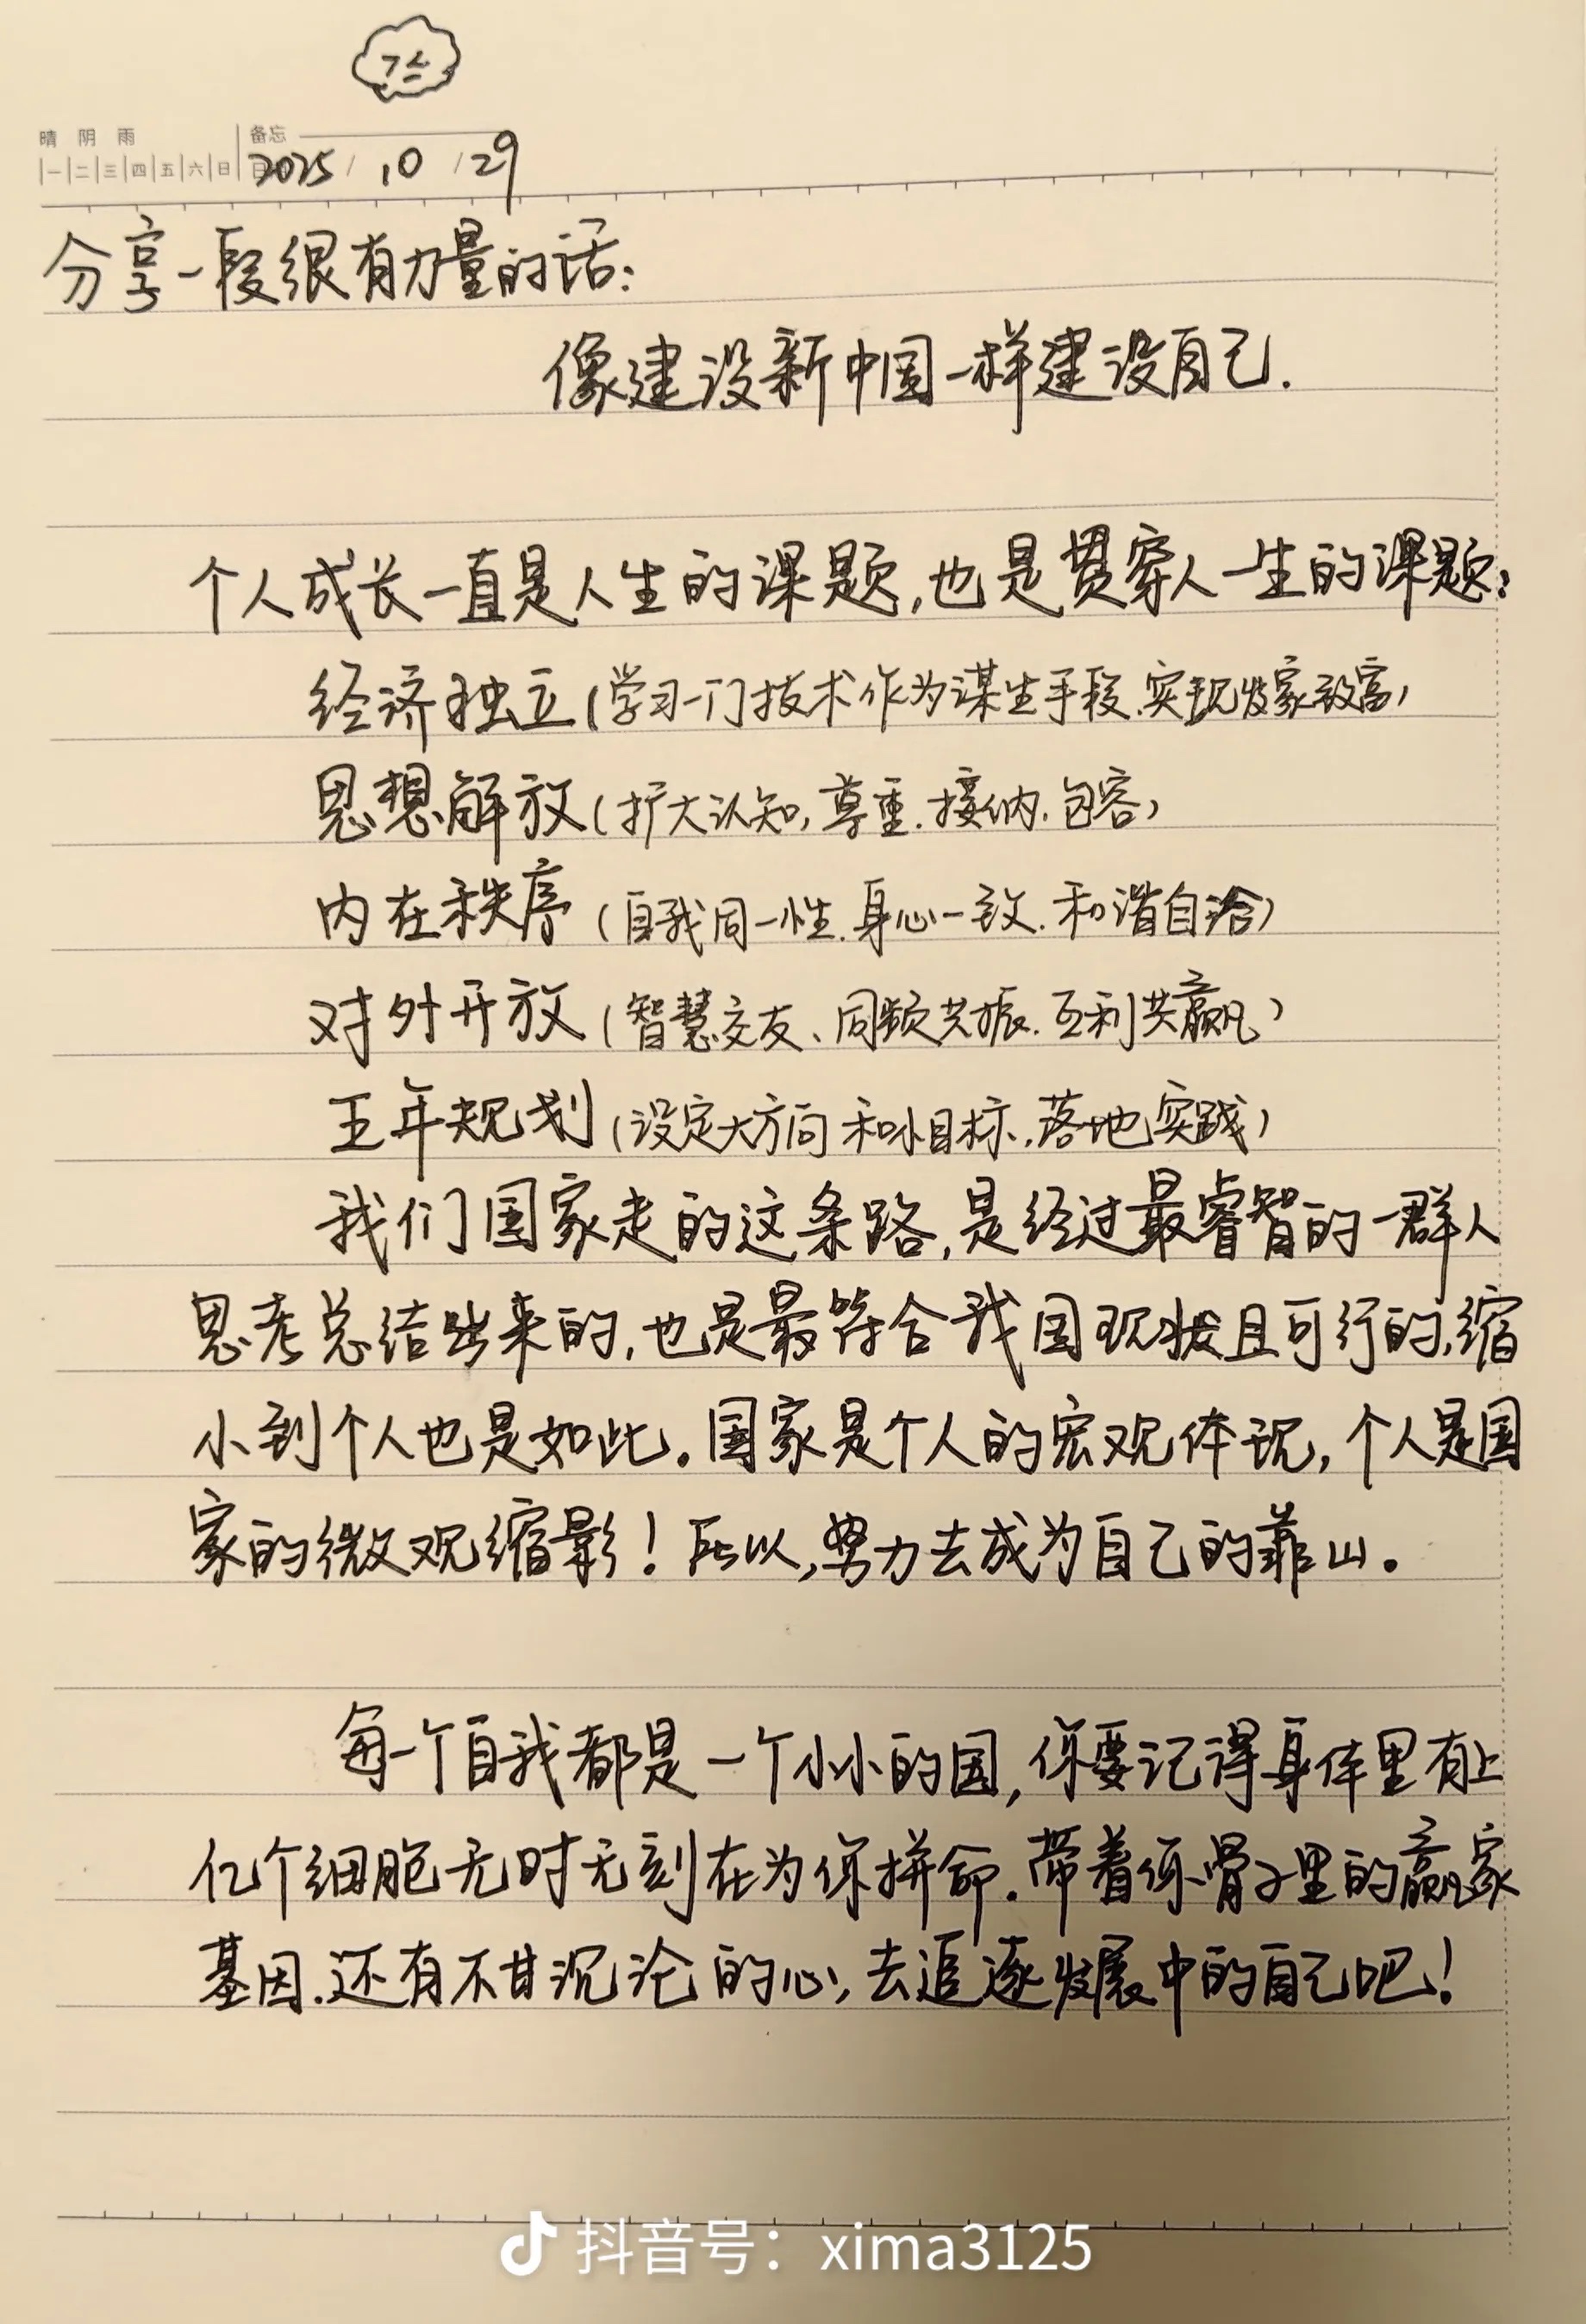 晴 阴 雨
备忘
一 二 三 四 五 六 日
2025 / 10 / 29
分享一段很有力量的话：
像建设新中国一样建设自己.
个人成长一直是人生的课题,也是贯穿人一生的课题：
经济独立(学习一门技术作为谋生手段.实现发家致富)
思想解放(扩大认知,尊重.接纳.包容)
内在秩序(自我同一性.身心一致.和谐自洽)
对外开放(智慧交友、同频共振.互利共赢)
五年规划(设定大方向和小目标,落地实践)
我们国家走的这条路,是经过最睿智的一群人
思考总结出来的,也是最符合我国现状且可行的,缩
小到个人也是如此。国家是个人的宏观体现,个人是国
家的微观缩影！所以,努力去成为自己的靠山。
每一个自我都是一个小小的国,你要记得身体里有上
亿个细胞无时无刻在为你拼命.带着你骨子里的赢家
基因.还有不甘沉沦的心,去追逐发展中的自己吧！
抖音号：xima3125